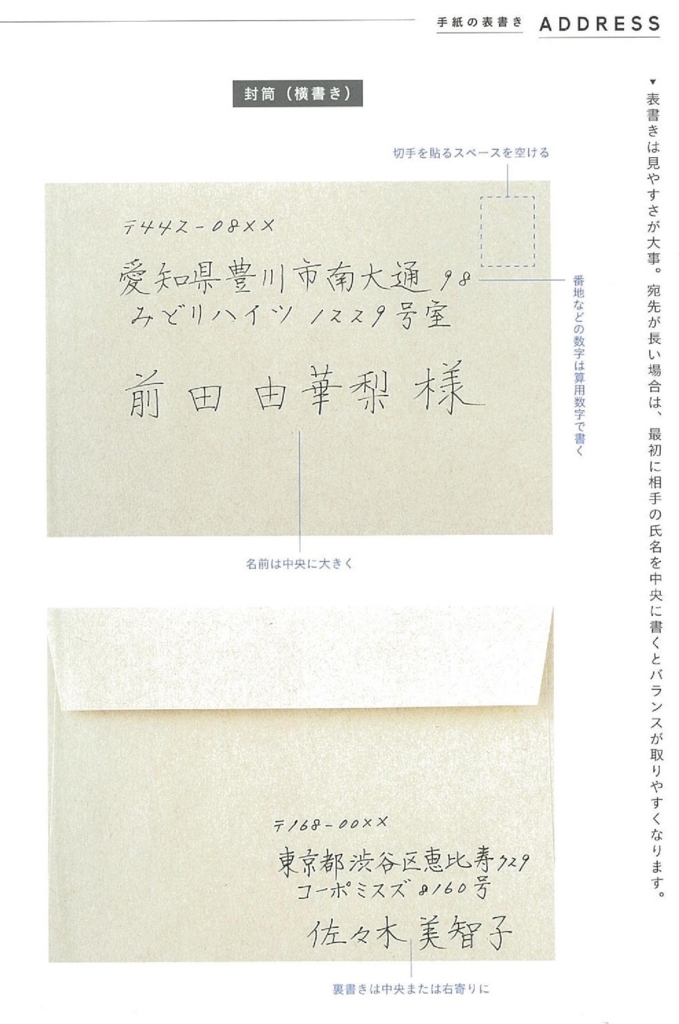 手紙の表書き ADDRESS
▼表書きは見やすさが大事。宛先が長い場合は、最初に相手の氏名を中央に書くとバランスが取りやすくなります。
封筒（横書き）
切手を貼るスペースを空ける
〒442-08××
愛知県豊川市南大通 98
みどりハイツ 1229号室
前田 由華梨 様
番地などの数字は算用数字で書く
名前は中央に大きく
〒168-00××
東京都渋谷区恵比寿729
コーポミスズ 8160号
佐々木 美智子
裏書きは中央または右寄りに